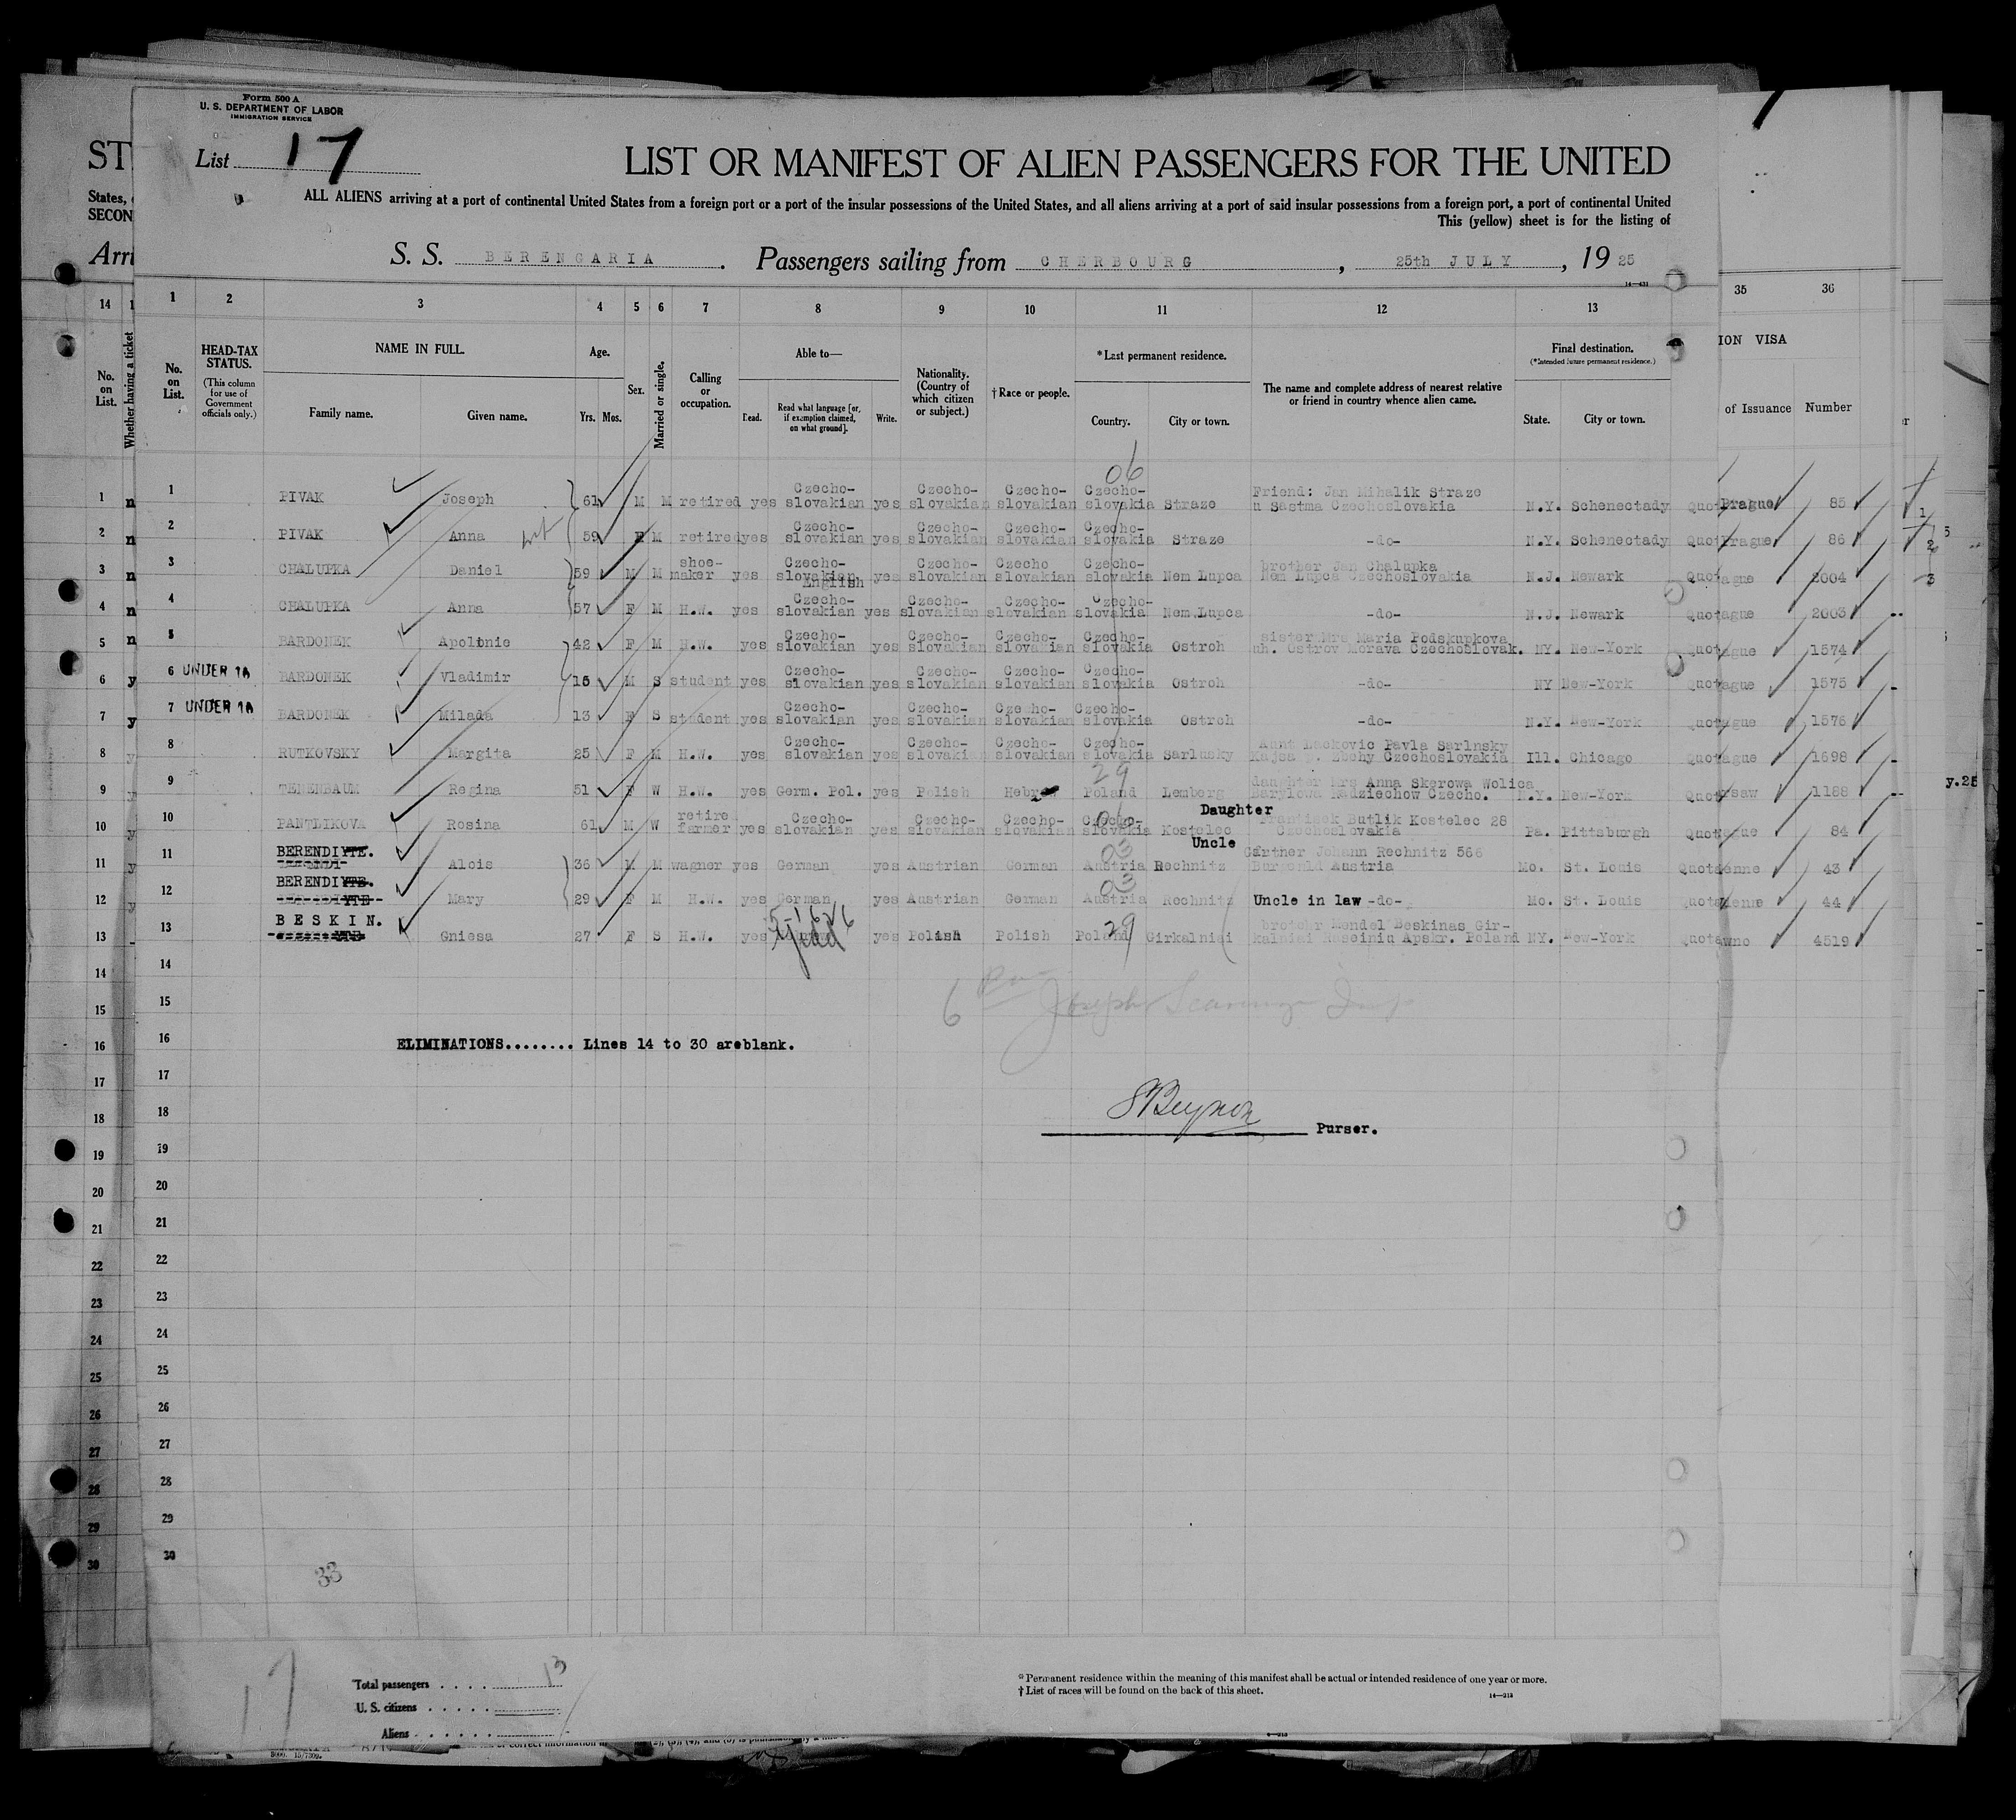 Form 500 A
U. S. DEPARTMENT OF LABOR
IMMIGRATION SERVICE
List 17
LIST OR MANIFEST OF ALIEN PASSENGERS FOR THE UNITED
ALL ALIENS arriving at a port of continental United States from a foreign port or a port of the insular possessions of the United States, and all aliens arriving at a port of said insular possessions from a foreign port, a port of continental United
This (yellow) sheet is for the listing of
S. S. BERENGARIA. Passengers sailing from CHERBOURG, 25th JULY, 1925
ST
States,
SECON
Arri
1 2 3 4 5 6 7 8 9 10 11 12 13
14 35 36
No. on List.
HEAD-TAX STATUS.
(This column for use of Government officials only.)
NAME IN FULL.
Family name. Given name.
Age.
Yrs. Mos.
Sex.
Married or single.
Calling or occupation.
Able to—
Read. Read what language [or, if exemption claimed, on what ground]. Write.
Nationality. (Country of which citizen or subject.)
†Race or people.
*Last permanent residence.
Country. City or town.
The name and complete address of nearest relative or friend in country whence alien came.
Final destination.
(*Intended future permanent residence.)
State. City or town.
No. on List.
Whether having a ticket
ION VISA
of Issuance Number
06
1 PIVAK Joseph 61 M M retired yes Czecho-slovakian yes Czecho-slovakian Czecho-slovakian Czecho-slovakia Straze Friend: Jan Mihalik Straze n Sastma Czechoslovakia N.Y. Schenectady Quot Prague 85
2 PIVAK Anna 59 F M retired yes Czecho-slovakian yes Czecho-slovakian Czecho-slovakian Czecho-slovakia Straze -do- N.Y. Schenectady Quot Prague 86
3 CHALUPKA Daniel 59 M M shoe-maker yes Czecho-slovakian English yes Czecho-slovakian Czecho slovakian Czecho-slovakia Nem Lupca brother Jan Chalupka Nem Lupca Czechoslovakia N.J. Newark Quot ague 2004
4 CHALUPKA Anna 57 F M H.W. yes Czecho-slovakian yes Czecho-slovakian Czecho-slovakian Czecho-slovakia Nem.Lupca -do- N.J. Newark Quot ague 2003
5 BARDONEK Apolonie 42 F M H.W. yes Czecho-slovakian yes Czecho-slovakian Czecho-slovakian Czecho-slovakia Ostroh sister Mrs Maria Podskupkova uh. Ostrov Morava Czechoslovak. NY. New-York Quot ague 1574
6 UNDER 16 BARDONEK Vladimir 15 M S student yes Czecho-slovakian yes Czecho-slovakian Czecho-slovakian Czecho-slovakia Ostroh -do- NY New-York Quot ague 1575
7 UNDER 16 BARDONEK Milada 13 F S student yes Czecho-slovakian yes Czecho-slovakian Czecho-slovakian Czecho-slovakia Ostroh -do- N.Y. New-York Quot ague 1576
8 RUTKOVSKY Margita 25 F M H.W. yes Czecho-slovakian yes Czecho-slovakian Czecho-slovakian Czecho-slovakia Sarlusky Aunt Lackovic Pavla Sarlnsky Czechoslovakia Ill. Chicago Quot ague 1698
9 TENENBAUM Regina 51 F W H.W. yes Germ. Pol. yes Polish Hebrew 29 Poland Lemberg daughter Mrs Anna Skerowa Wolica Barylowa Radziechow Czecho. N.Y. New-York Quot rsaw 1188
10 PANTLIKOVA Rosina 61 M W retire farmer yes Czecho-slovakian yes Czecho-slovakian Czecho-slovakian 06 Czecho-slovakia Kostelec Daughter Frantisek Butlik Kostelec 28 Czechoslovakia Pa. Pittsburgh Quot ague 84
11 BERENDIYTE. Alois 36 M M wagner yes German yes Austrian German 03 Austria Rechnitz Uncle Gartner Johann Rechnitz 566 Burgenld Austria Mo. St. Louis Quot ienne 43
12 BERENDIYTE. Mary 29 F M H.W. yes German yes Austrian German 03 Austria Rechnitz Uncle in law -do- Mo. St. Louis Quot ienne 44
13 BESKIN. Gniesa 27 F S H.W. yes Yidd yes Polish Polish 29 Poland Girkalniai brotehr Mendel Beskinas Girkalniai Raseiniu Apskr. Poland NY. New-York Quot wno 4519
14
15
16 ELIMINATIONS........ Lines 14 to 30 areblank.
17
18
Purser.
19
20
21
22
23
24
25
26
27
28
29
30
33
17
Total passengers 13
U. S. citizens
Aliens
*Permanent residence within the meaning of this manifest shall be actual or intended residence of one year or more.
†List of races will be found on the back of this sheet.
14—213